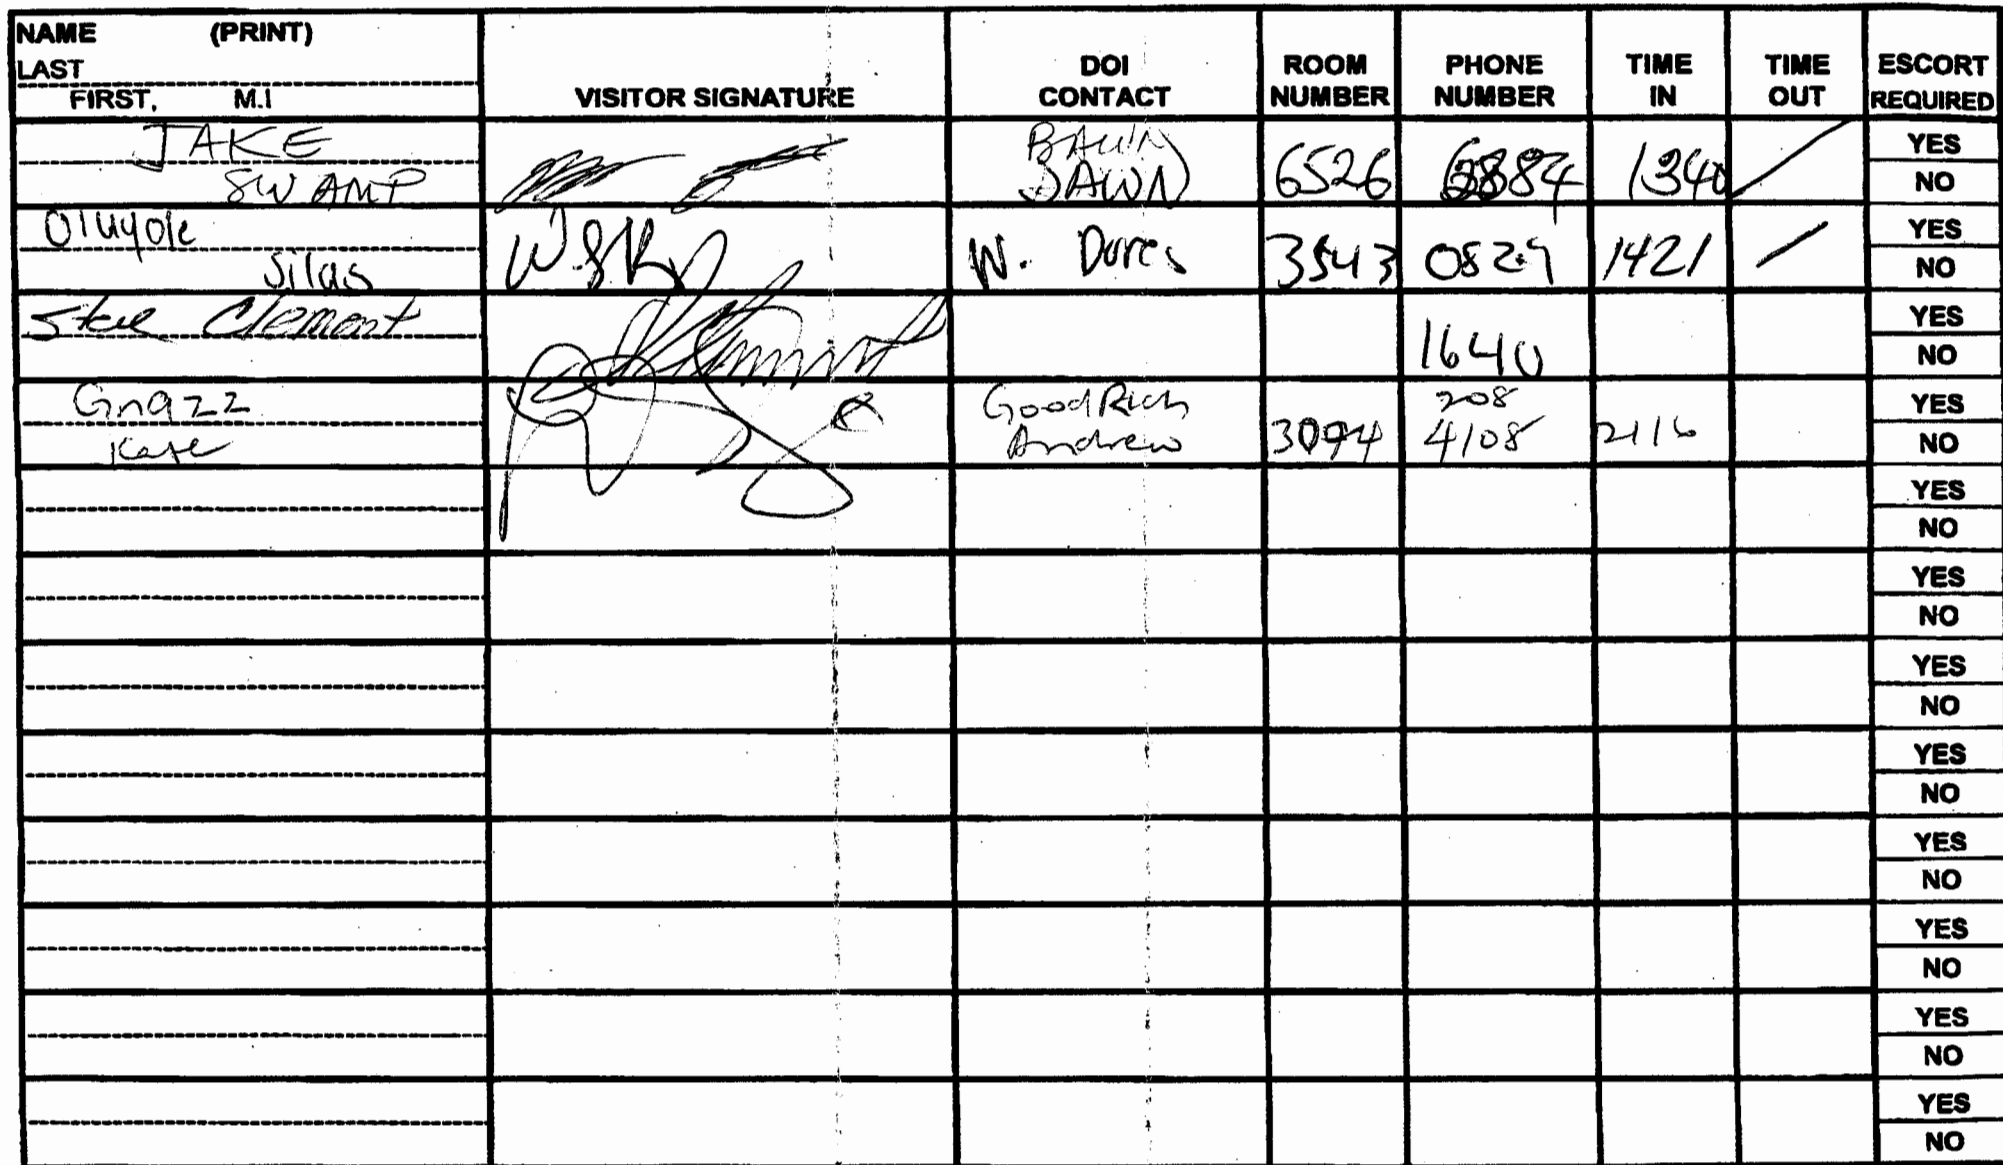 NAME (PRINT)
LAST
FIRST, M.I
VISITOR SIGNATURE
DOI CONTACT
ROOM NUMBER
PHONE NUMBER
TIME IN
TIME OUT
ESCORT REQUIRED
JAKE
SWAMP
DAWN
6526
1340
YES
NO
Oluyole
Silas
W.
3543
1421
YES
NO
Clement
1640
YES
NO
Gnazz
Kate
GoodRich
Andrew
3094
208
4108
2116
YES
NO
YES
NO
YES
NO
YES
NO
YES
NO
YES
NO
YES
NO
YES
NO
YES
NO